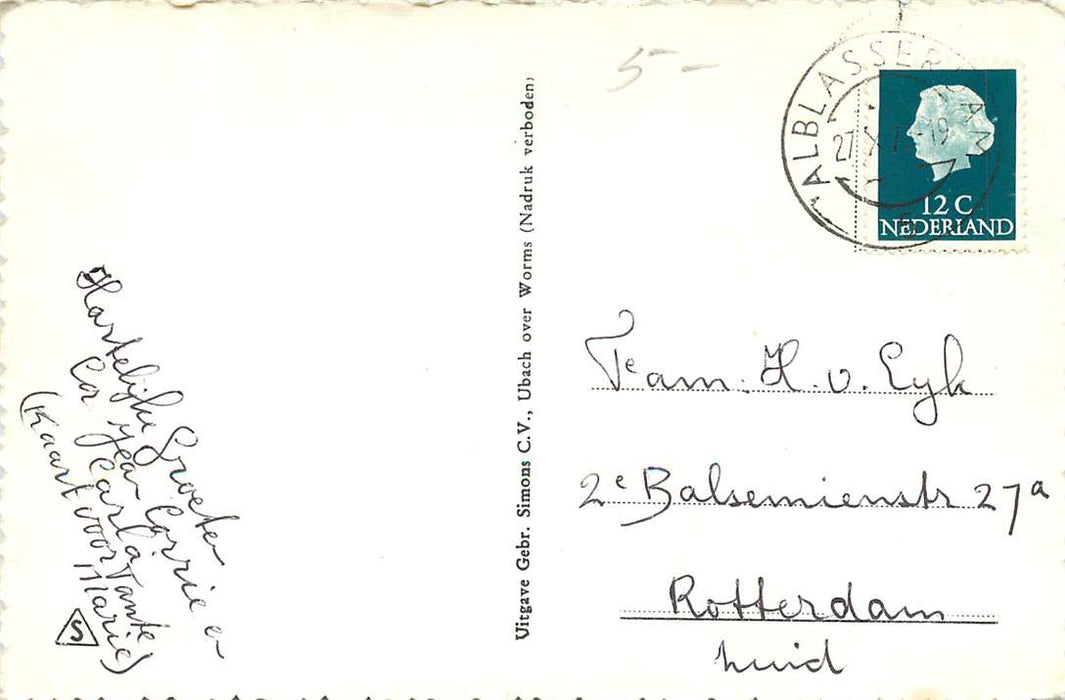 Hartelijke Groeten
Cor Jea Corrie en
Carla
(Kaart voor Tante
Marie)
S
Uitgave Gebr. Simons C.V., Ubach over Worms (Nadruk verboden)
5-
ALBLASSERDAM
27 X -19
12 C
NEDERLAND
Fam: H. v. Eyk
2e Balsemienstr 27a
Rotterdam
huid